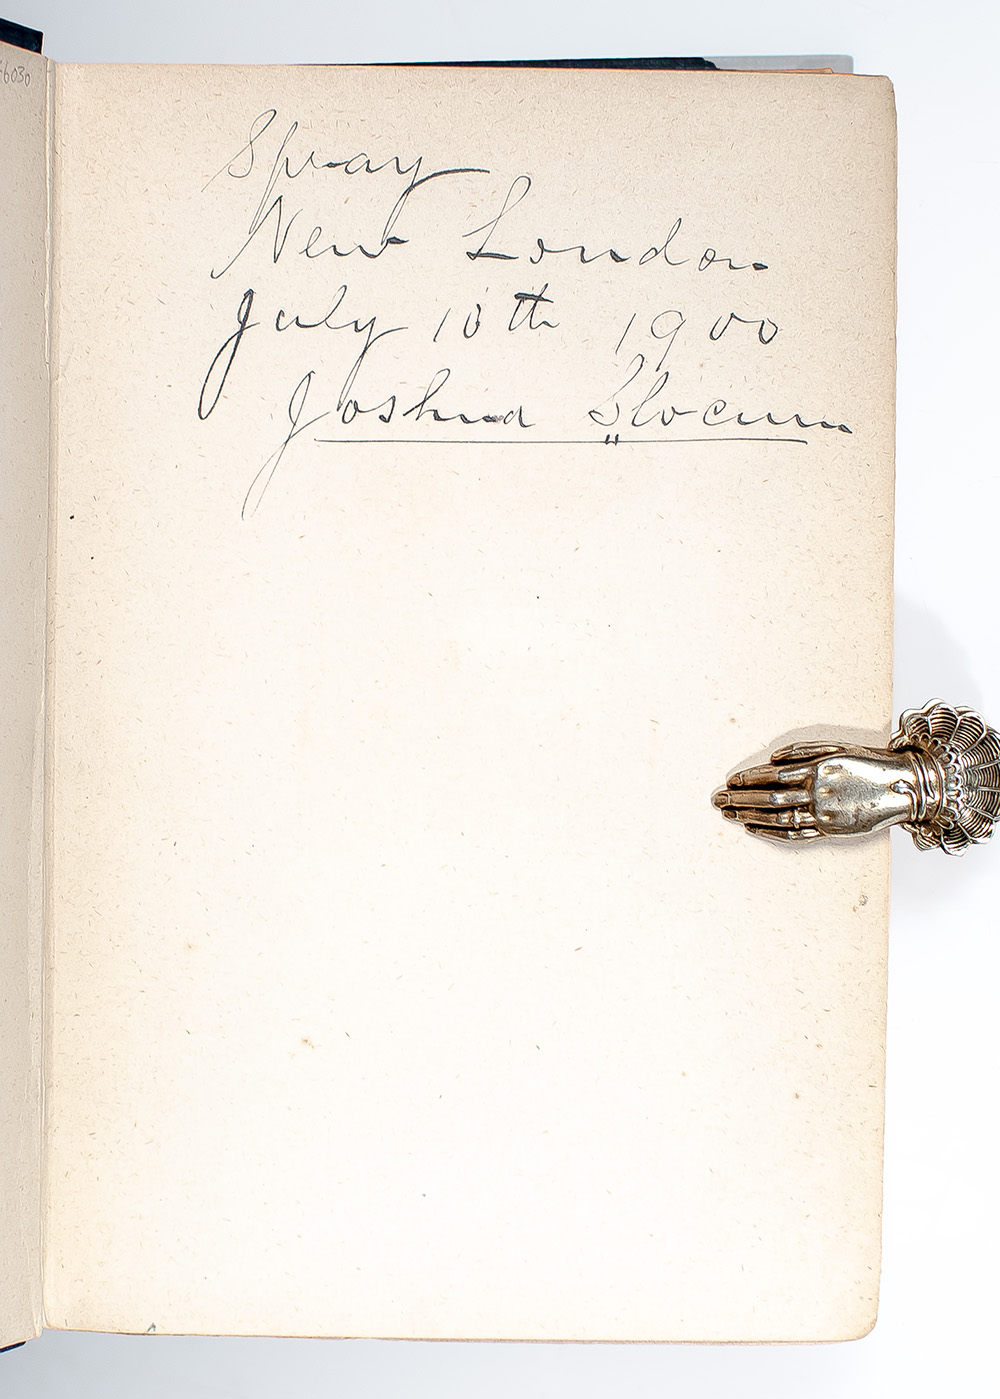 Spray
New London
July 10th 1900
Joshua Slocum
6030